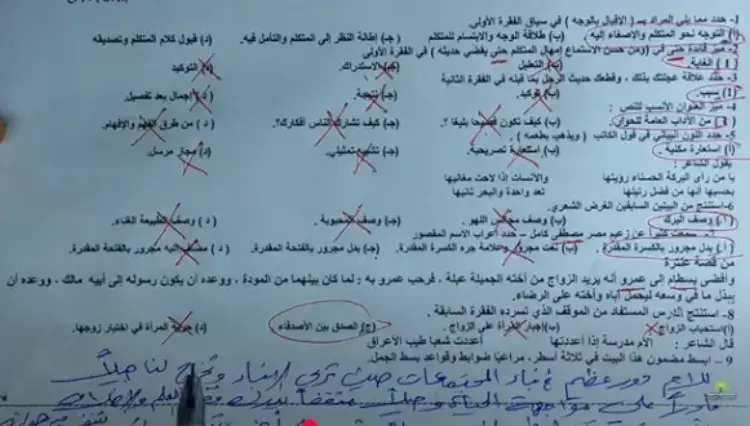 1- حدد مما يلي المراد بـ (الإقبال بالوجه) في سياق الفقرة الأولى.
(أ) التوجه نحو المتكلم والإصغاء إليه (ب) طلاقة الوجه والابتسام للمتكلم (جـ) إطالة النظر إلى المتكلم والتأمل فيه. (د) قبول كلام المتكلم وتصديقه
2- ميز فائدة حتى في (ومن حسن الاستماع إمهال المتكلم حتى يفضي حديثه) في الفقرة الأولى
(أ) الغاية. (ب) التعليل (جـ) الاستدراك. (د) التوكيد
3- حدد علاقة عجلتك بذلك، وقطعك حديث الرجل بما قبله في الفقرة الثانية
(أ) سبب. (ب) توكيد. (جـ) نتيجة (د) إجمال بعد تفصيل.
4- ميز العنوان الأنسب للنص:
(أ) من الآداب العامة للحوار. (ب) كيف تكون فصيحا بليغا؟. (جـ) كيف تشارك الناس أفكارك؟. (د) من طرق الفهم والإفهام.
5- حدد اللون البياني في قول الكاتب (ويذهب بطعمه).
(أ) استعارة مكنية. (ب) استعارة تصريحية. (جـ) تشبيه تمثيلي. (د) مجاز مرسل.
يقول الشاعر:
يا من رأى البركة الحسناء رؤيتها والآنسات إذا لاحت مغانيها
بحسبها أنها من فضل رتبتها تعد واحدة والبحر ثانيها
6- استنتج من البيتين السابقين الغرض الشعري.
(أ) وصف البرك (ب) وصف مجالس اللهو. (جـ) وصف المحبوبة. (د) وصف الطبيعة الغناء.
7- سمعت كثيرا عن زعيم مصر مصطفى كامل – حدد إعراب الاسم المقصور
(أ) بدل مجرور بالكسرة المقدرة (ب) نعت مجرور وعلامة جره الكسرة المقدرة. (جـ) بدل مجرور بالفتحة المقدرة. (د) مضاف إليه مجرور بالفتحة المقدرة.
من قصة عنترة
وأفضى بسطام إلى عمرو أنه يريد الزواج من أخته الجميلة عبلة، فرحب عمرو به: لما كان بينهما من المودة، ووعده أن يكون رسوله إلى أبيه مالك، ووعده أن
يبذل ما في وسعه ليحمل أباه وأخته على الرضاء.
8- استنتج الدرس المستفاد من الموقف الذي تسرده الفقرة السابقة.
(أ) استحباب الزواج (ب) إجبار المرأة على الزواج. (ج) الصدق بين الأصدقاء (د) حرية المرأة في اختيار زوجها.
قال الشاعر: الأم مدرسة إذا أعددتها أعددت شعبا طيب الأعراق
9- ابسط مضمون هذا البيت في ثلاثة أسطر، مراعيا ضوابط وقواعد بسط الجمل.
للأم دور عظيم في بناء المجتمعات حيث تربي الأبناء وتخرج لنا جيلاً
قادراً على مواجهة الحياة وجيلاً مثقفاً